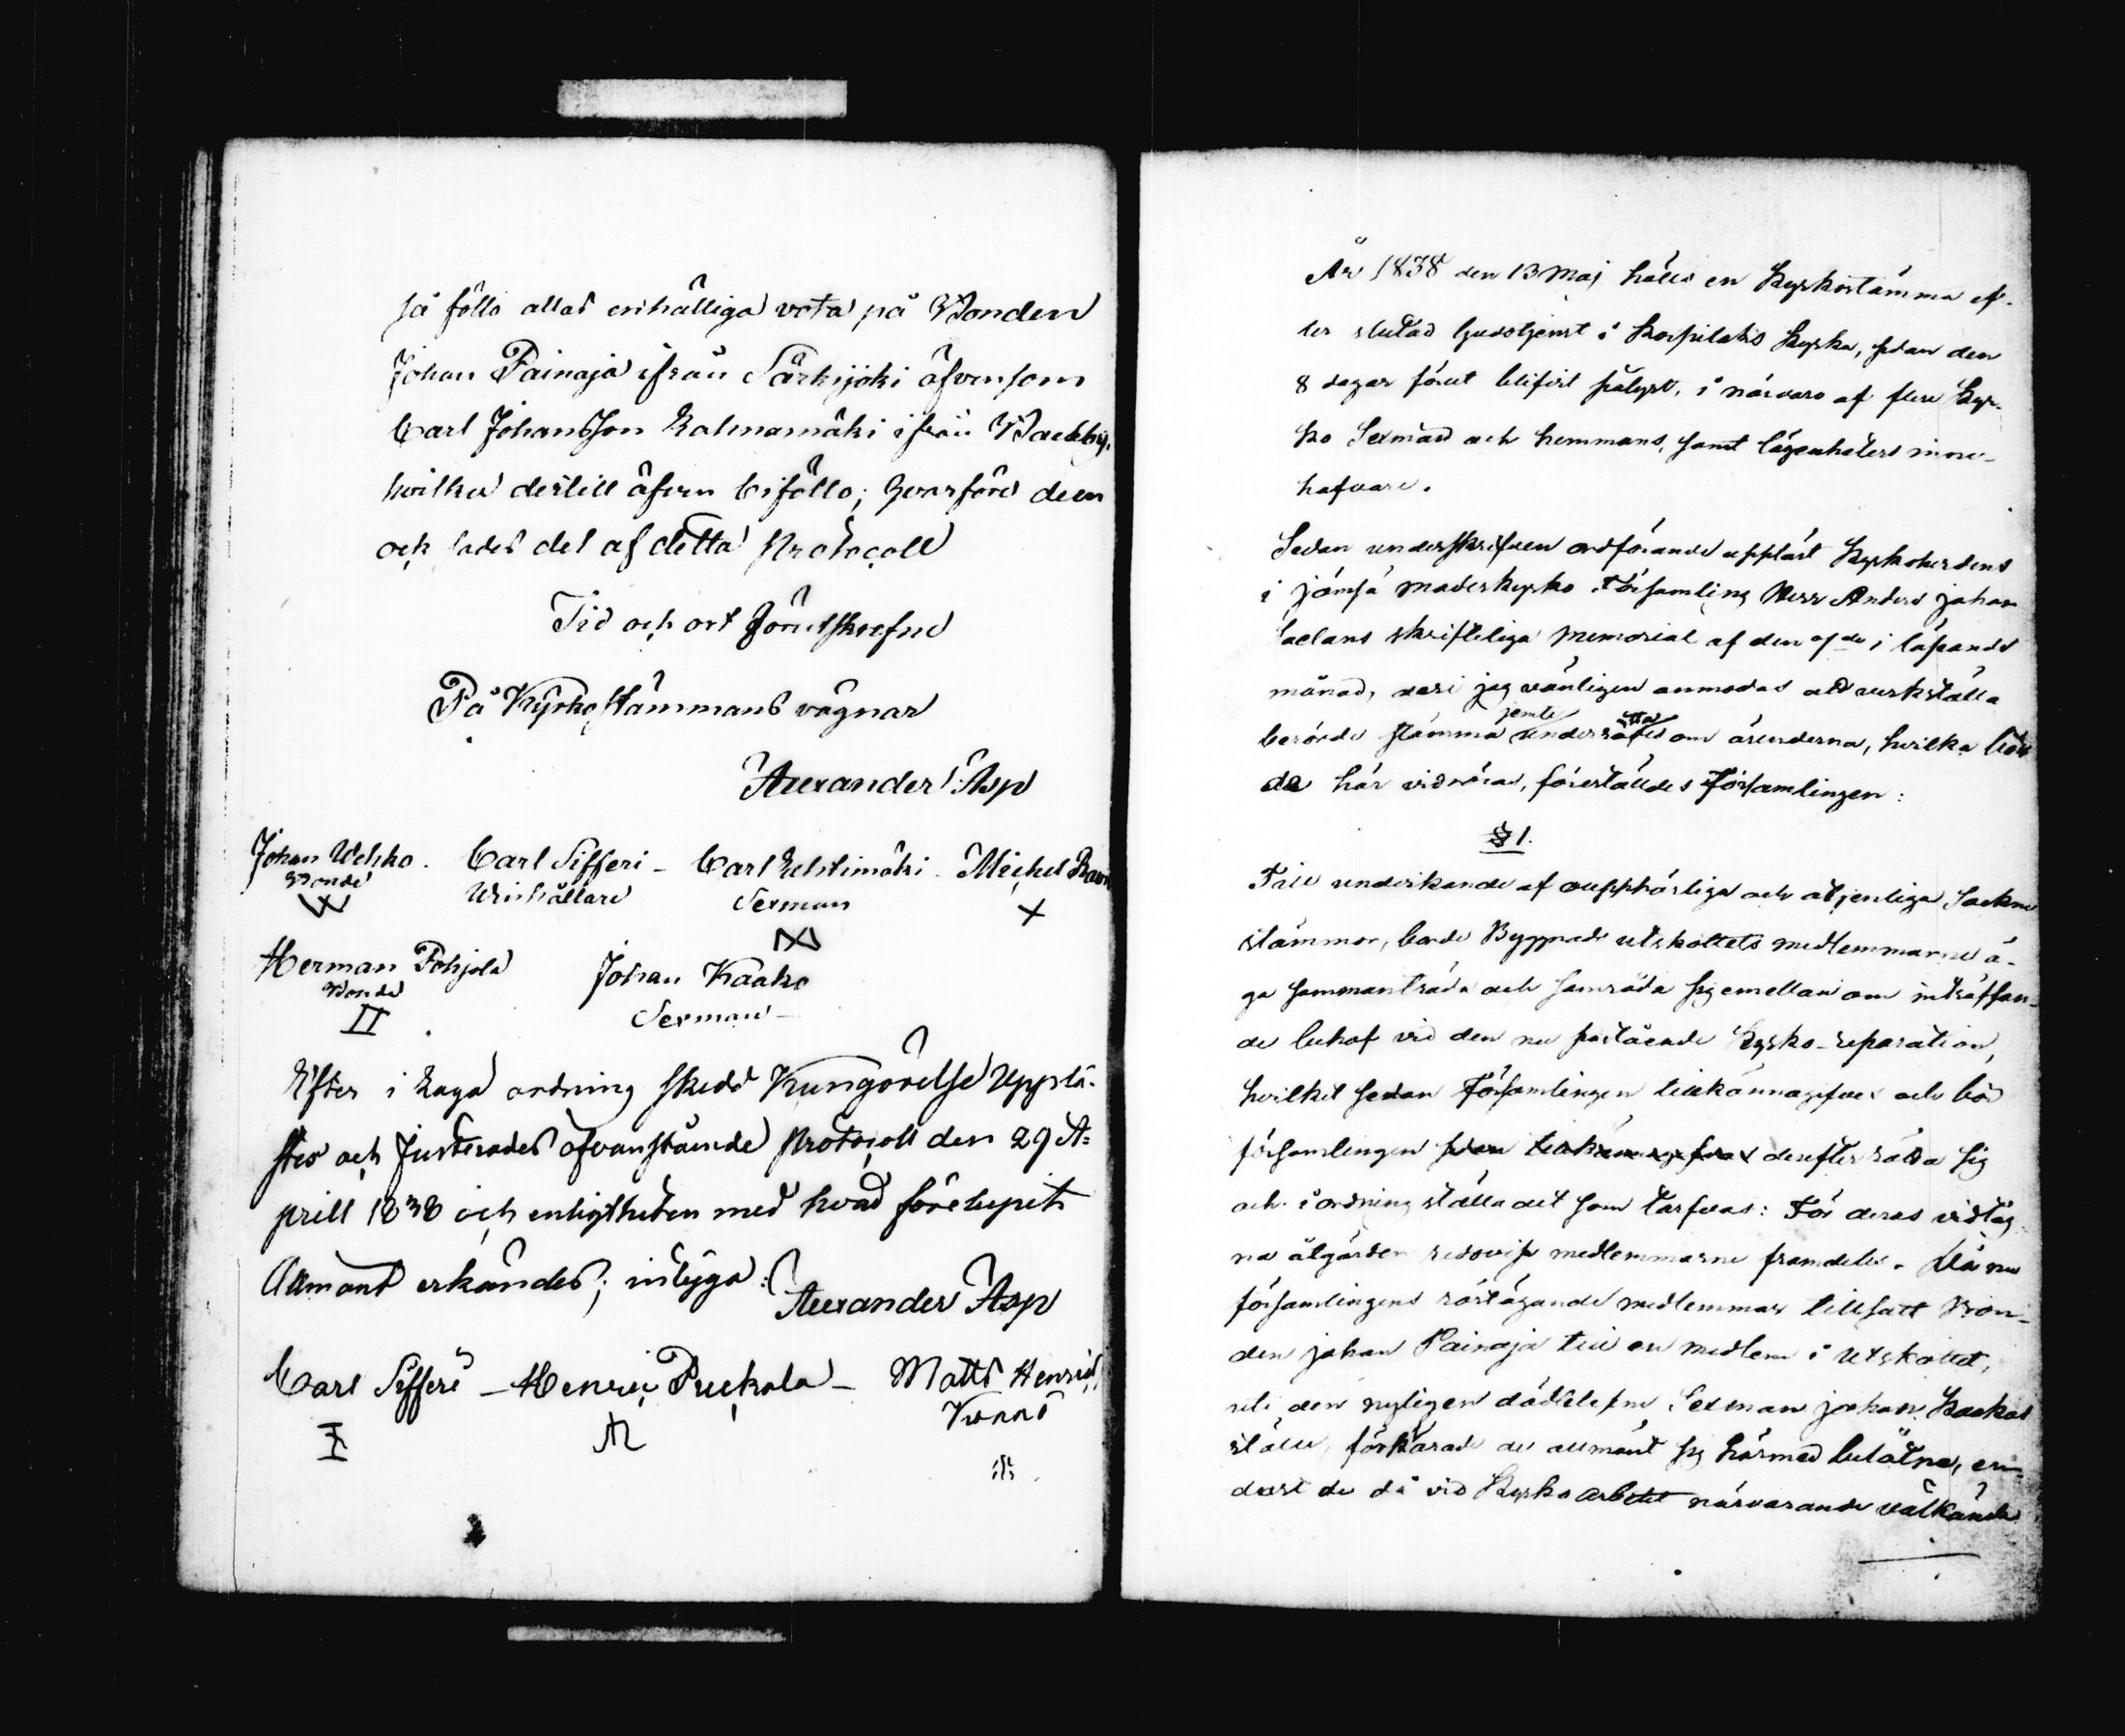 så föllo allas enhälliga vota på Bonden
Johan Painaja ifrån Särkijoki äfvensom
Carl Johansson Kalmamäki ifrån Backby,
hvilka dertill äfven biföllo; hvarföre dem
ock lades del af detta Protocoll
Tid och ort Förutskrefne
På Kyrkostämmans vägnar
Alexander Asp
Johan Wehko. Carl Sifferi – Carl Lehtimäki. Michel
Bonde Urishållare Sexman X
Herman Pohjola Johan Kaako
Bonde Sexman –
II
Efter i Laga ordning skedd Kungörelse Upplä-
stes och Justerades ofvanstående Protocoll den 29 A-
prill 1838 och enligtheten med hvad förelupit
Allmänt erkändes; intyga:
Alexander Asp
Carl Sifferi – Henric Puckala – Matts Henrics
År 1838 den 13 Maj hölls en Kyrkostämma ef-
ter slutad Gudstjenst i Korpilaks Kyrka, sedan den
8 dagar förut blifvit pålyst, i närvaro af flere Kyr-
ko Sexmän och hemmans, samt lägenheters inne-
hafvare.
Sedan underskrifven ordförande uppläst Kyrkoherdens
i Jämsä Moderkyrko Församling Herr Anders Johan
skriftliga Memorial af den 7de i löpande
månad, vari jag vänligen anmodas att verkställa
berörde stämma jemte underrätta om ärenderna, hvilka bör
da här vidröras, föreställdes Församlingen:
§ 1.
Till undvikande af oupphörliga och otjenliga Sockne
stämmor, borde Byggnads utskottets medlemmarne ä-
ga sammanträda och samråda sig emellan om inträffan-
de behof vid den nu påstående Kyrko-reparation,
hvilket sedan Församlingen tillkännagifves och bör
församlingen sedan tillkännagifvas derefter rätta sig
och i ordning ställa det som tarfvas: För deras vidtag-
na åtgärder redovisa medlemmarne framdeles. Då nu
församlingens röstägande medlemmar tillsatt Bon-
den Johan Painaja till en medlem i Utskottet,
uti den nyligen dödblefne Sexman Johan Kaakos
ställe, förklarade de allmänt sig härmed belåtne, en-
dast de då vid Kyrko arbetet närvarande välkände